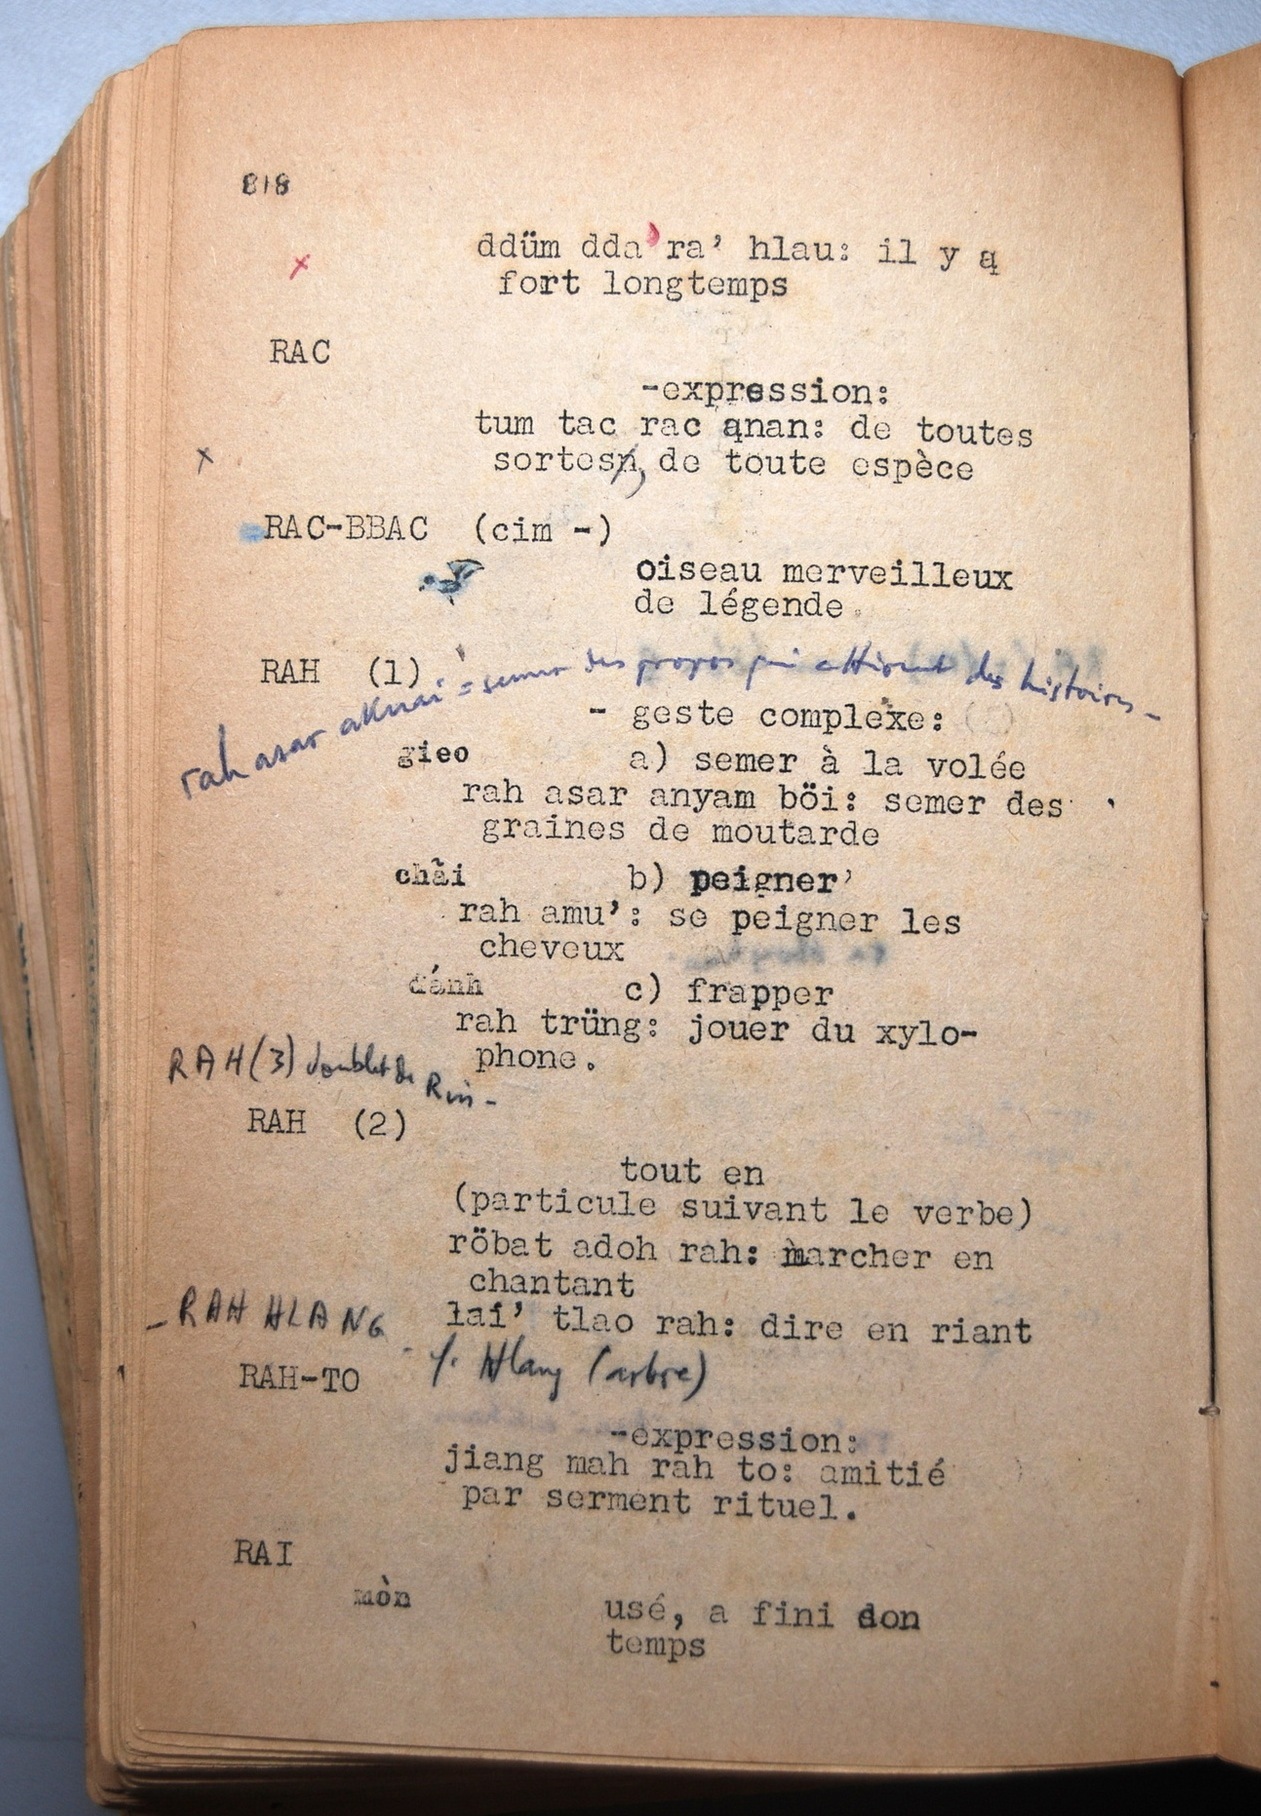 818
ddüm dda' ra' hlau: il y a
fort longtemps
RAC
-expression:
tum tac rac anan: de toutes
sortes, de toute espèce
RAC-BBAC (cim -)
oiseau merveilleux
de légende.
RAH (1)
rah asar akuai = semer des propos qui attirent des histoires -
- geste complexe:
gieo a) semer à la volée
rah asar anyam böi: semer des
graines de moutarde
chải b) peigner
rah amu': se peigner les
cheveux
đánh c) frapper
rah trüng: jouer du xylo-
phone.
RAH (3) doublet de
RAH (2)
tout en
(particule suivant le verbe)
röbat adoh rah: marcher en
chantant
lai' tlao rah: dire en riant
- RAH HLANG
Hlang (arbre)
RAH-TO
-expression:
jiang mah rah to: amitié
par serment rituel.
RAI
mòn usé, a fini son
temps